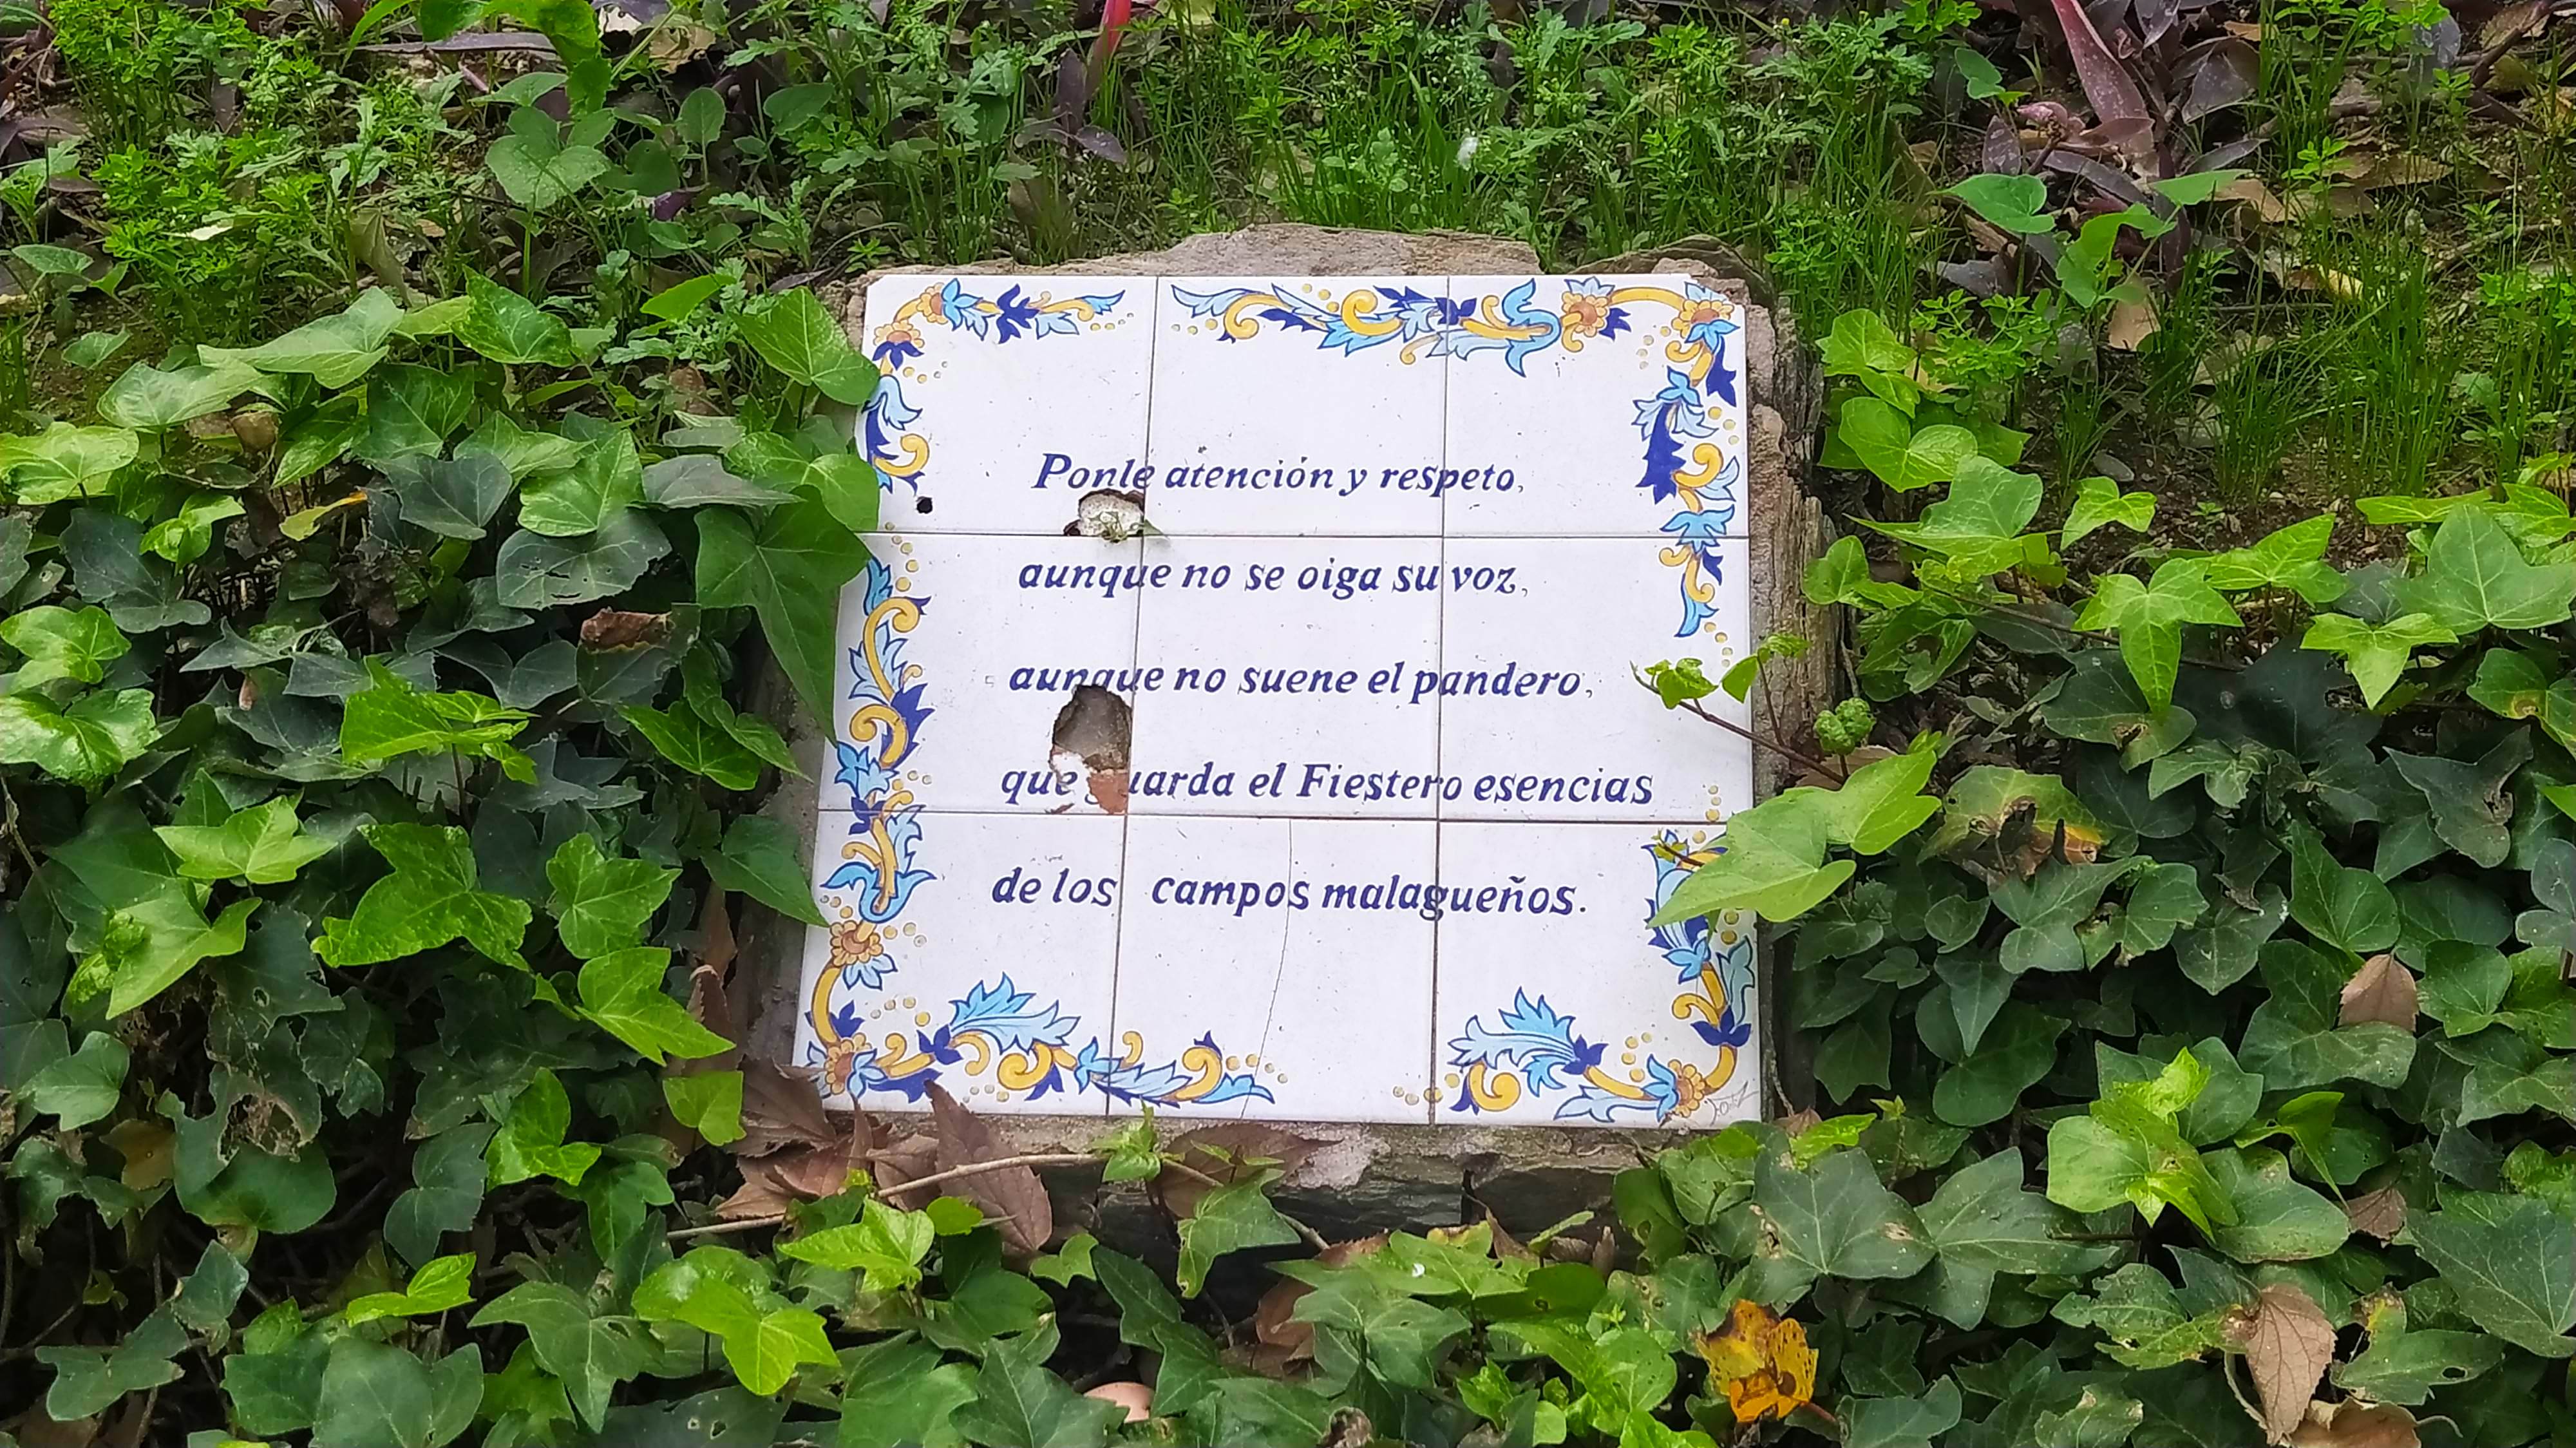 Ponle atención y respeto,
aunque no se oiga su voz,
aunque no suene el pandero,
que guarda el Fiestero esencias
de los campos malagueños.